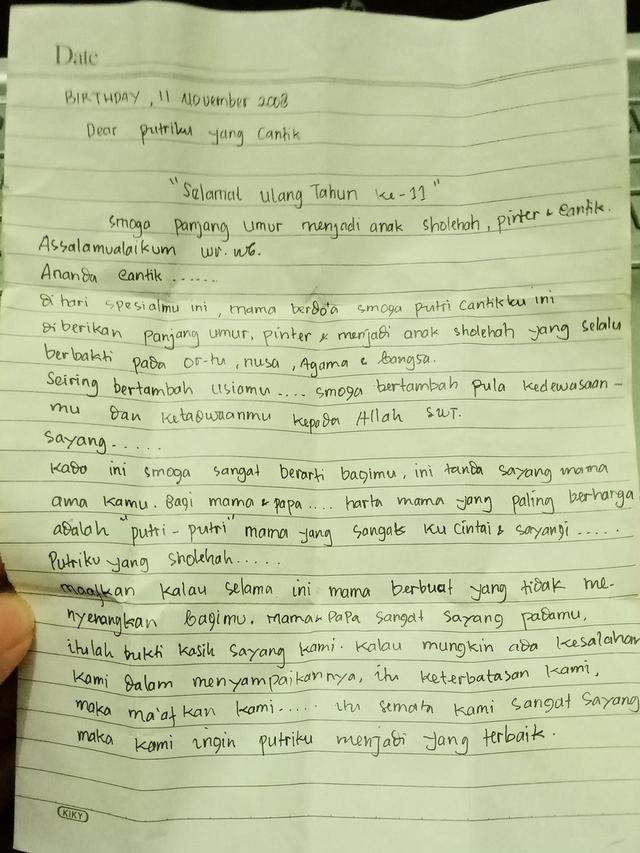 Date
BIRTHDAY, 11 November 2008
Dear putriku yang Cantik
"Selamat ulang Tahun ke-11"
smoga panjang umur menjadi anak sholehah, pinter & Cantik.
Assalamualaikum wr. wb.
Ananda Cantik ......
di hari spesialmu ini, mama berdo'a smoga putri Cantikku ini
diberikan panjang umur, pinter & menjadi anak sholehah yang selalu
berbakti pada or-tu, nusa, Agama & bangsa.
Seiring bertambah usiamu .... smoga bertambah pula kedewasaan-
mu dan ketaqwaanmu kepada Allah SWT.
Sayang.....
kado ini smoga sangat berarti bagimu, ini tanda sayang mama
ama kamu. Bagi mama & papa .... harta mama yang paling berharga
adalah "putri-putri" mama yang sangat ku Cintai & sayangi .....
Putriku yang sholehah.....
maafkan kalau selama ini mama berbuat yang tidak me-
nyenangkan bagimu. mama & papa sangat sayang padamu,
itulah bukti kasih sayang kami. kalau mungkin ada kesalahan
kami dalam menyampaikannya, itu keterbatasan kami,
maka ma'afkan kami..... itu semata kami sangat sayang
maka kami ingin putriku menjadi yang terbaik.
KIKY